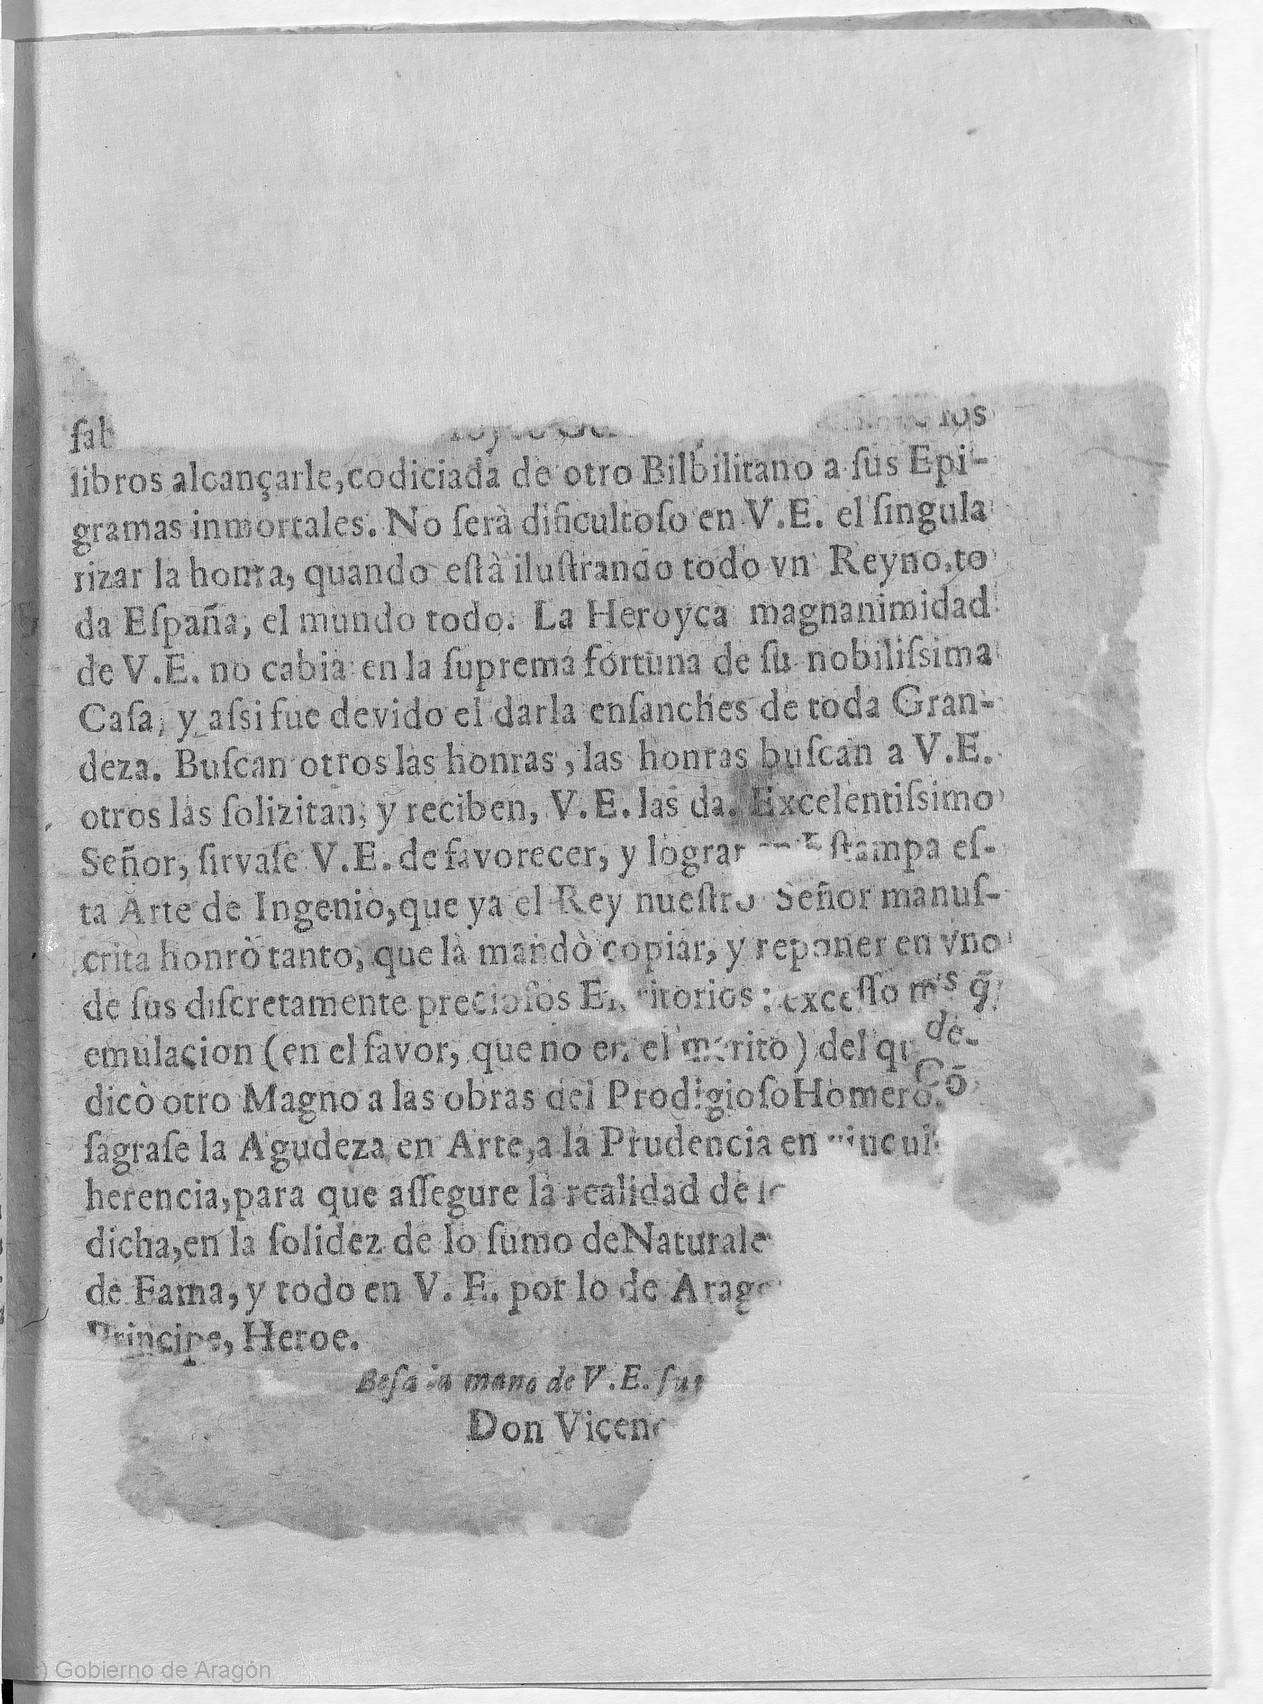 los
libros alcançarle, codiciada de otro Bilbilitano a ſus Epi-
gramas inmortales. No ſerà dificultoſo en V.E. el ſingula
rizar la honra, quando eſtà iluſtrando todo vn Reyno, to
da Eſpaña, el mundo todo. La Heroyca magnanimidad
de V.E. no cabia en la ſuprema fortuna de ſu nobiliſsima
Caſa, y aſsi fue devido el darla enſanches de toda Gran-
deza. Buſcan otros las honras, las honras buſcan a V.E.
otros las ſolizitan, y reciben, V.E. las da. Excelentiſsimo
Señor, ſirvaſe V.E. de favorecer, y lograr Eſtampa eſ-
ta Arte de Ingenio, que ya el Rey nueſtro Señor manuſ-
crita honrò tanto, que la mandò copiar, y reponer en vno
de ſus diſcretamente precioſos : exceſſo mˢ q̃
emulacion (en el favor, que no en el merito) del de-
dicò otro Magno a las obras del Prodigioſo Homero. Cõ
ſagraſe la Agudeza en Arte, a la Prudencia en
herencia, para que aſſegure la realidad de
dicha, en la ſolidez de lo ſumo de
de Fama, y todo en V.E. por lo de
Principe, Heroe.
Beſa la mano de V.E. ſu
Don
Gobierno de Aragón